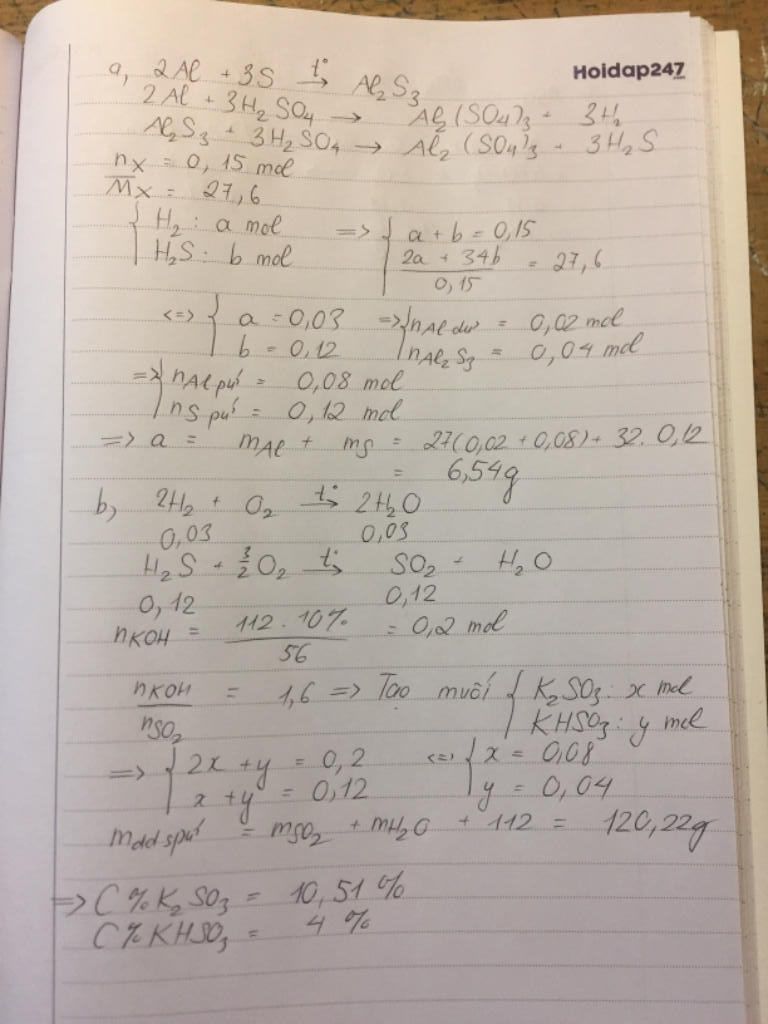 Hoidap247
.com
a, 2Al + 3S t°→ Al₂S₃
2Al + 3H₂SO₄ → Al₂(SO₄)₃ + 3H₂
Al₂S₃ + 3H₂SO₄ → Al₂(SO₄)₃ + 3H₂S
nX = 0,15 mol
M̅X = 27,6
{ H₂ : a mol => { a + b = 0,15
H₂S : b mol (2a + 34b)/0,15 = 27,6
<=> { a = 0,03 => { nAl dư = 0,02 mol
b = 0,12 nAl₂S₃ = 0,04 mol
=> { nAl pứ = 0,08 mol
nS pứ = 0,12 mol
=> a = mAl + mS = 27(0,02 + 0,08) + 32. 0,12
= 6,54g
b, 2H₂ + O₂ t°→ 2H₂O
0,03 0,03
H₂S + 3/2 O₂ t°→ SO₂ + H₂O
0,12 0,12
nKOH = (112 . 10%)/56 = 0,2 mol
nKOH/nSO₂ = 1,6 => Tạo muối { K₂SO₃ : x mol
KHSO₃ : y mol
=> { 2x + y = 0,2 <=> { x = 0,08
x + y = 0,12 y = 0,04
mdd spứ = mSO₂ + mH₂O + 112 = 120,22g
=> C% K₂SO₃ = 10,51 %
C% KHSO₃ = 4 %